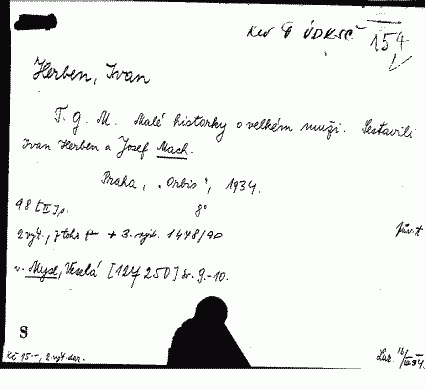 154
Herben, Ivan
T. G. M. Malé historky o velkém muži. Sestavili
Ivan Herben a Josef Mach.
Praha, „Orbis", 1934.
48 [II] s. 8°
2 výt., + 3. výt. 1478/90
v. Mysl, Veselá [127 250] 9.-10.
S
Kč 15.--, 2 výt. dar.